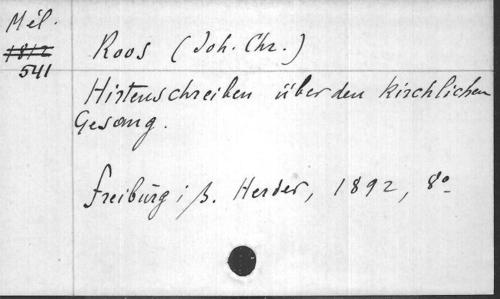 Mél.
1812
541
Roos (Joh. Chr.)
Hirtenschreiben über den kirchlichen
Gesang.
Freiburg i/B. Herder, 1892, 8º